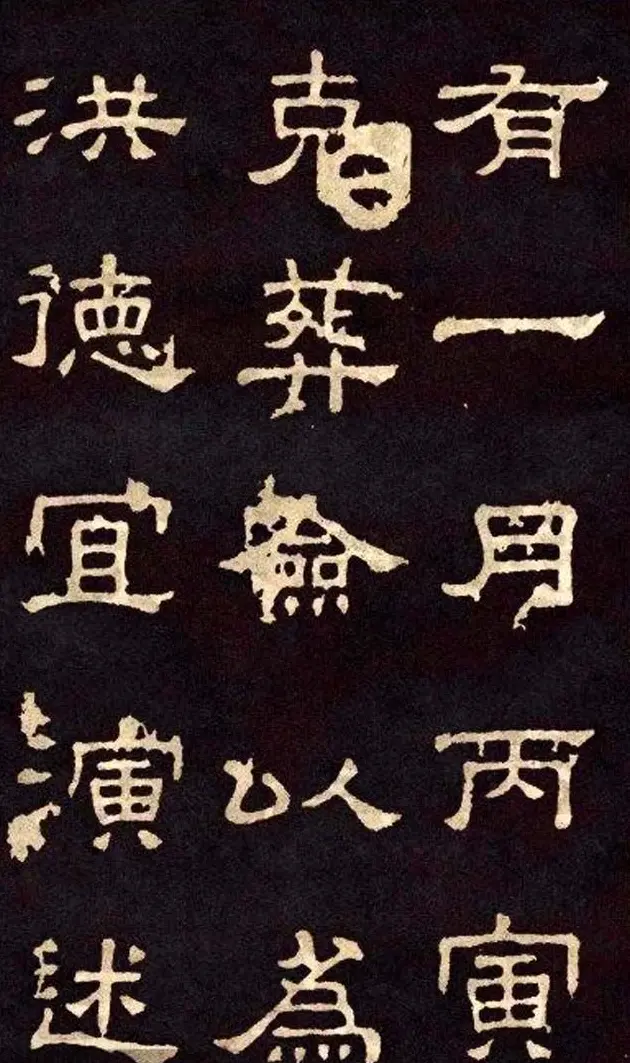 有一月丙寅
克葬以為
洪德宜演述